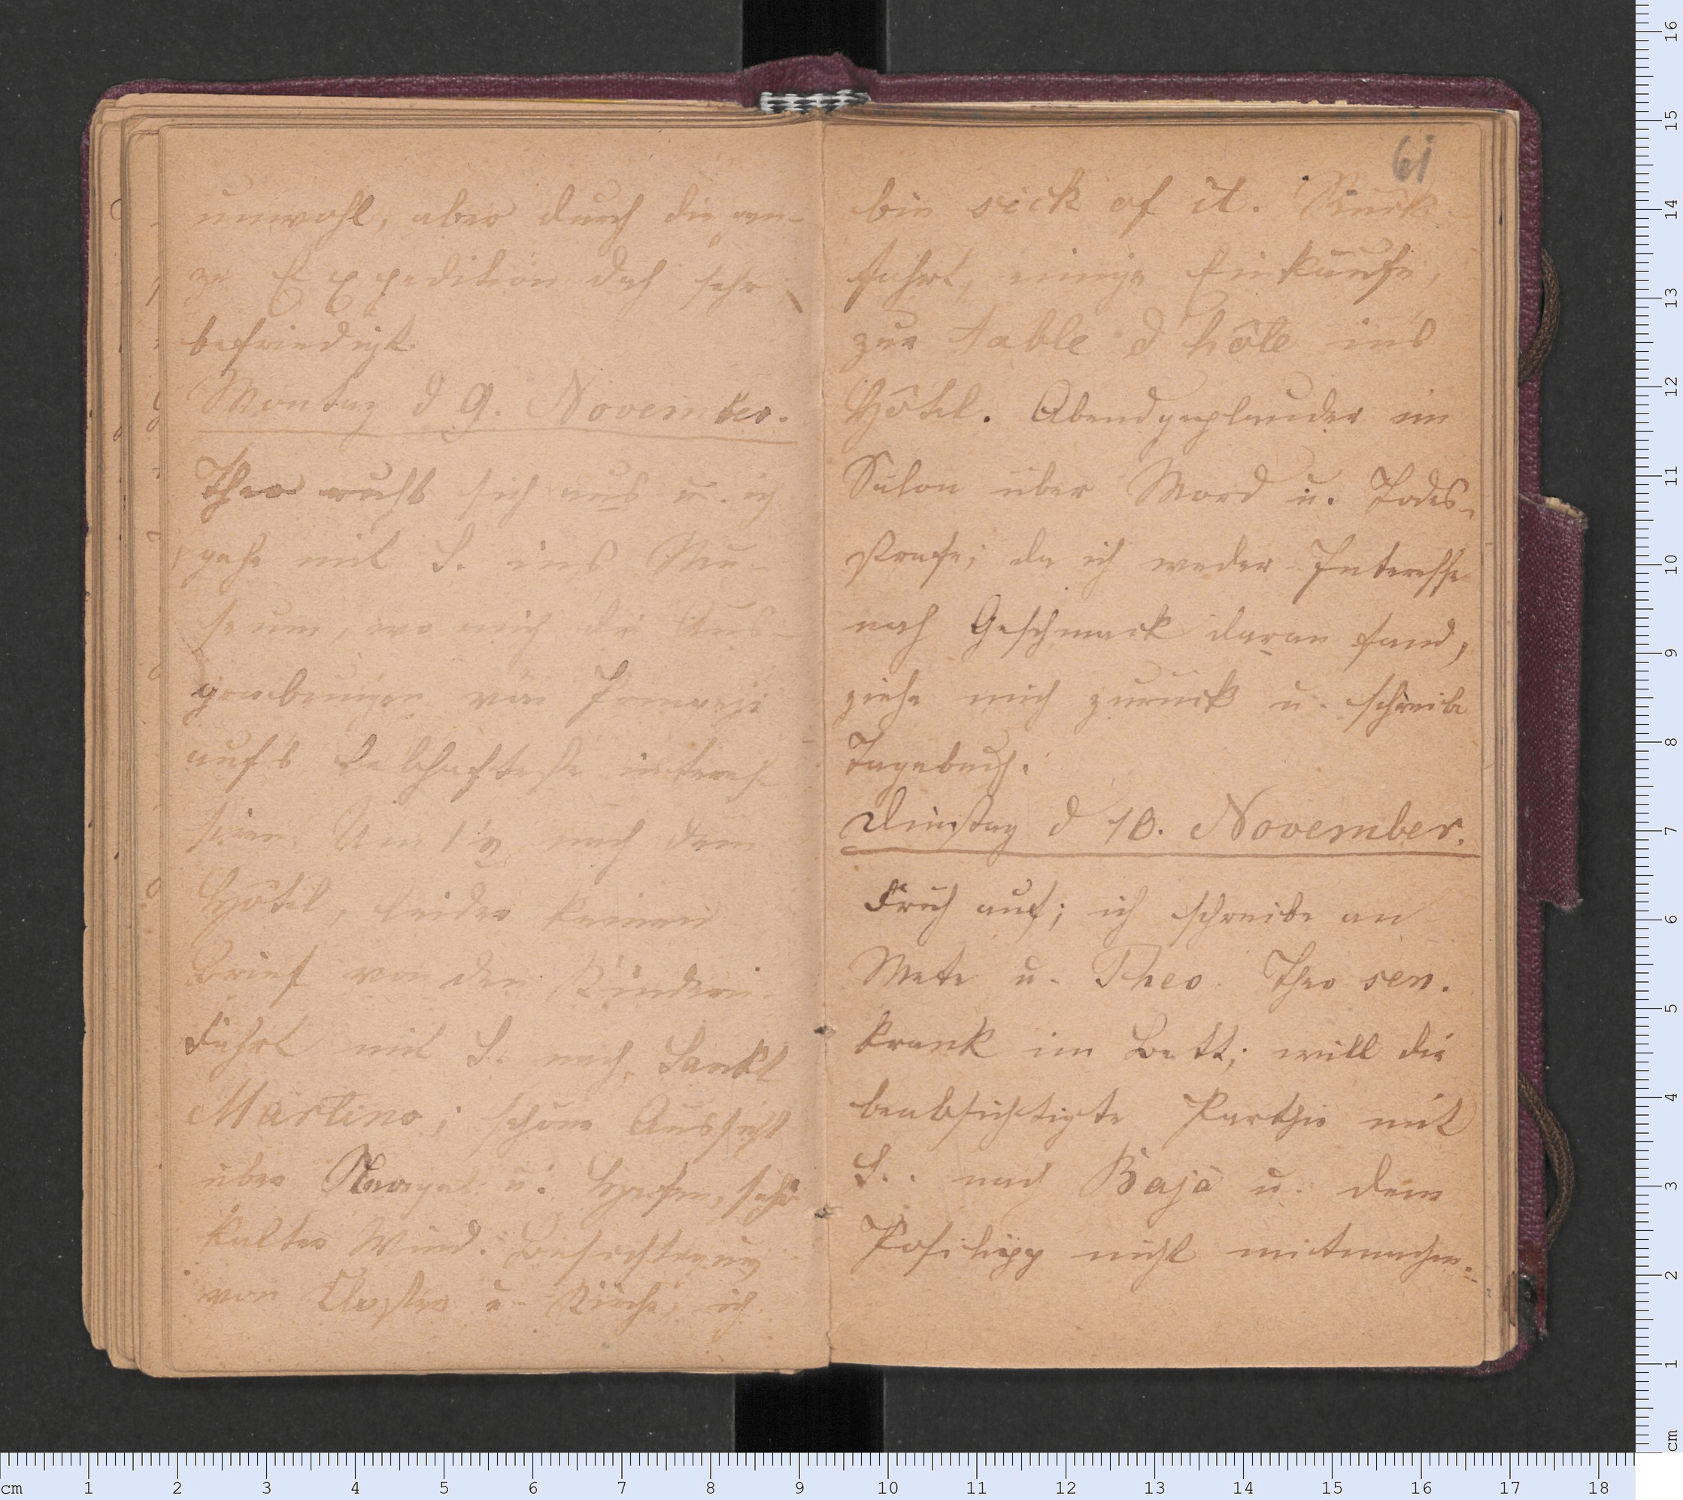 unwohl, aber durch die gan-
ze Expedition doch sehr
befriedigt.
Montag d 9. November.
Theo ruht sich aus u. ich
gehe mit S. ins Mu-
seum, wo mich die Aus-
grabungen von Pompeji
auf's Lebhafteste interes-
siren. Um 1 ½ nach dem
Hôtel, leider keinen
Brief von den Kindern.
Fahrt mit S. nach Sankt
Martino; schöne Aussicht
über Neapel u. Hafen, sehr
kalter Wind. Besichtigung
von Closter u. Kirche; ich
61
bin sick of it. Rück-
fahrt, einige Einkäufe,
zur table d hôte in's
Hôtel. Abendgeplauder im
Salon über Mord u. Todes-
strafe; da ich weder Interesse
noch Geschmack daran fand,
ziehe mich zurück u. schreibe
Tagebuch.
Dinstag d 10. November.
Früh auf; ich schreibe an
Mete u. Theo. Theo sen.
krank im Bett; will die
beabsichtigte Parthie mit
S. nach Bajä u. dem
Posilipp nicht mitmachen.